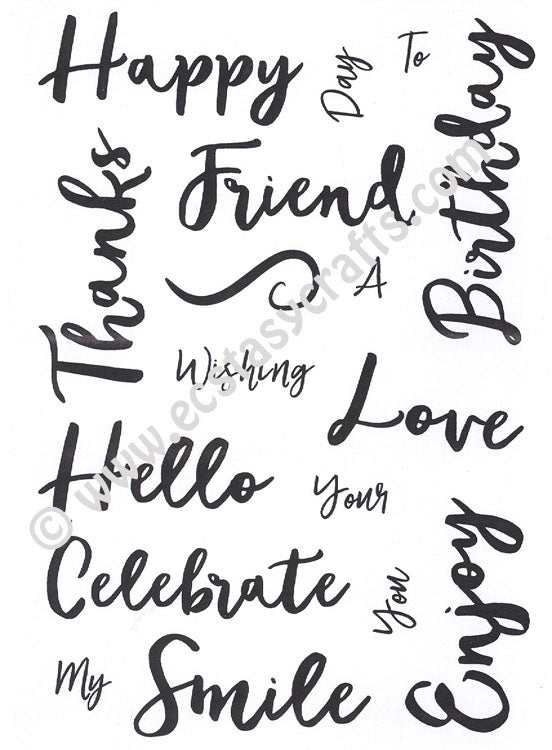 Happy
Day
To
Birthday
Thanks
Friend
A
Wishing
Love
Hello
Your
Enjoy
Celebrate
You
My
Smile
© www.ecstasycrafts.com